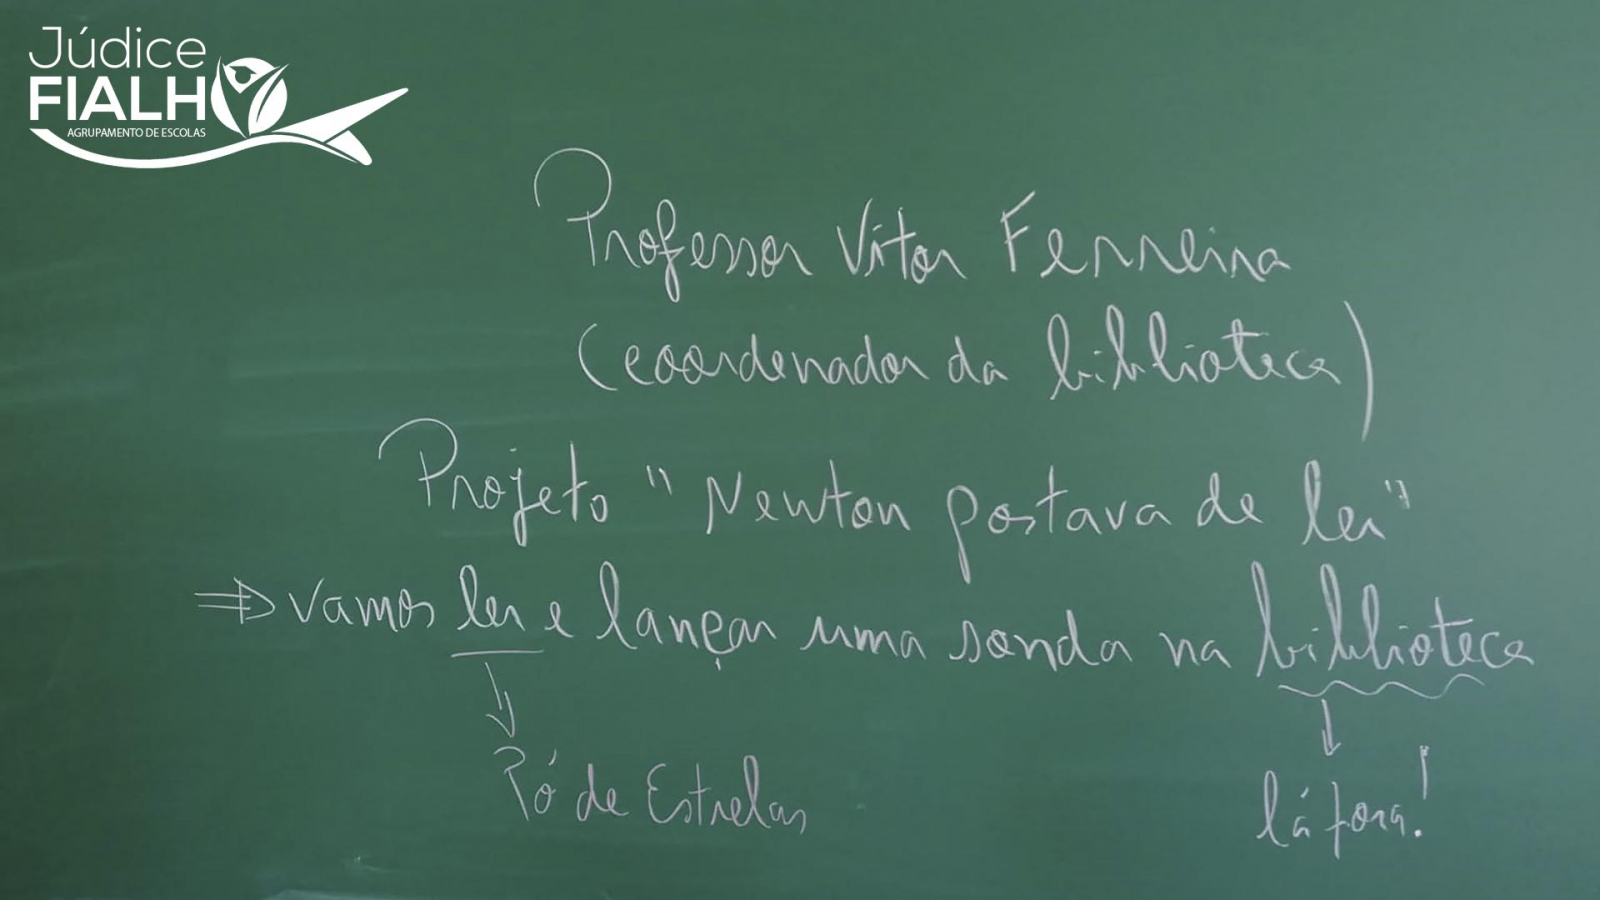 Júdice
FIALHO
AGRUPAMENTO DE ESCOLAS
Professor Vítor Ferreira
(coordenador da biblioteca)
Projeto "Newton gostava de ler"
⇒ Vamos ler e lançar uma sonda na biblioteca
Pó de Estrelas
lá fora!